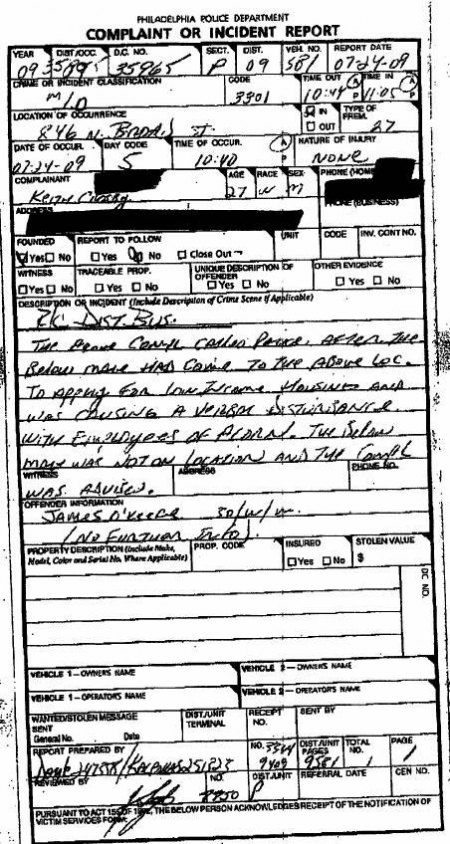 PHILADELPHIA POLICE DEPARTMENT
COMPLAINT OR INCIDENT REPORT
YEAR DIST/OCC. D.C. NO. SECT. DIST. VEH. NO. REPORT DATE
09 35965 P 09 581 07-24-09
CRIME OR INCIDENT CLASSIFICATION CODE TIME OUT A P TIME IN A P
M/D 3301 10:44 11:05
LOCATION OF OCCURRENCE IN OUT TYPE OF PREM.
846 N. Broad St. 27
DATE OF OCCUR. DAY CODE TIME OF OCCUR. A P NATURE OF INJURY
07-24-09 5 10:40 NONE
COMPLAINANT AGE RACE SEX PHONE (HOME)
Keith 27 W M
ADDRESS PHONE (BUSINESS)
FOUNDED REPORT TO FOLLOW UNIT CODE INV. CONT NO.
Yes No Yes No Close Out
WITNESS TRACEABLE PROP. UNIQUE DESCRIPTION OF OFFENDER OTHER EVIDENCE
Yes No Yes No Yes No Yes No
DESCRIPTION OR INCIDENT (Include Description of Crime Scene if Applicable)
DIST. BUS.
THE ABOVE COMPL CALLED POLICE. AFTER THE
BELOW MALE HAD COME TO THE ABOVE LOC.
TO APPLY FOR LOW INCOME HOUSING AND
WAS CAUSING A VERBAL DISTURBANCE
WITH EMPLOYEES OF ACORN. THE BELOW
MALE WAS NOT ON LOCATION AND THE COMPL
WITNESS ADDRESS PHONE NO.
WAS ADVISED.
OFFENDER INFORMATION
JAMES O'KEEFE 30/W/M.
(NO FURTHER INFO).
PROPERTY DESCRIPTION (Include Make, Model, Color and Serial No. Where Applicable) PROP. CODE INSURED Yes No STOLEN VALUE $
DC NO.
VEHICLE 1-OWNERS NAME VEHICLE 2-OWNERS NAME
VEHICLE 1-OPERATORS NAME VEHICLE 2-OPERATORS NAME
WANTED/STOLEN MESSAGE SENT DIST./UNIT TERMINAL RECEIPT NO. SENT BY
General No. Date
REPORT PREPARED BY NO. DIST/UNIT PAGES TOTAL NO. PAGE
9581 1 1
REVIEWED BY DIST/UNIT REFERRAL DATE CEN NO.
PURSUANT TO ACT OF THE BELOW PERSON ACKNOWLEDGES RECEIPT OF THE NOTIFICATION OF
VICTIM SERVICES FORM.